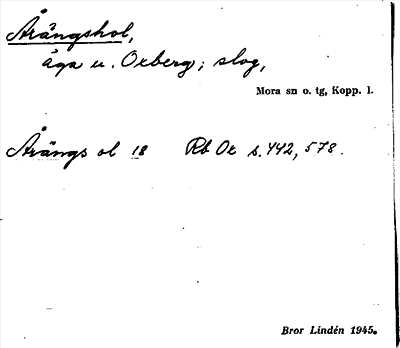 Årängshol,
äga u. Oxberg; slog,
Mora sn o. tg, Kopp. l.
Årängs ol 18 Rb Ox s. 442, 578.
Bror Lindén 1945.